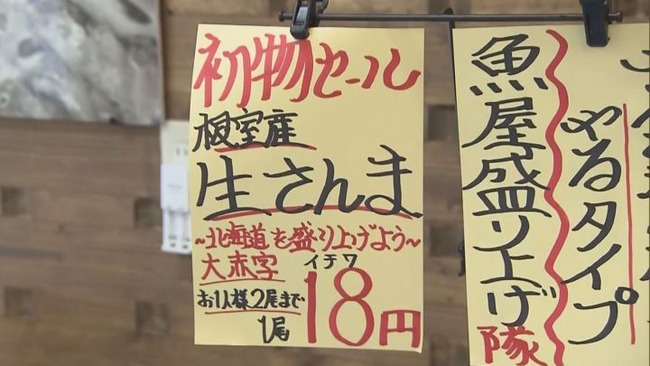 初物セール
根室産
生さんま
~北海道を盛り上げよう~
大赤字
お1人様2尾まで
1尾
イチワ
18円
やるタイプ
魚屋盛り上げ隊